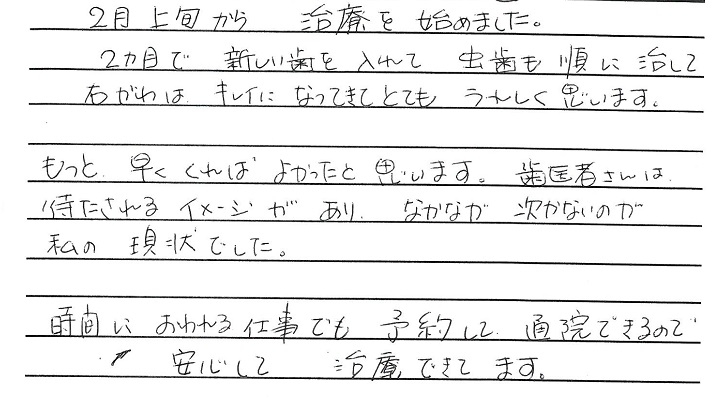 2月上旬から 治療を始めました。
2カ月で 新しい歯を入れて 虫歯も順に治して
右がわは キレイになってきてとても うれしく思います。
もっと 早くくれば よかったと思います。 歯医者さんは
待たされるイメージがあり なかなか 次かないのが
私の 現状でした。
時間に おわれる仕事でも 予約して 通院できるので
安心して 治療できてます。